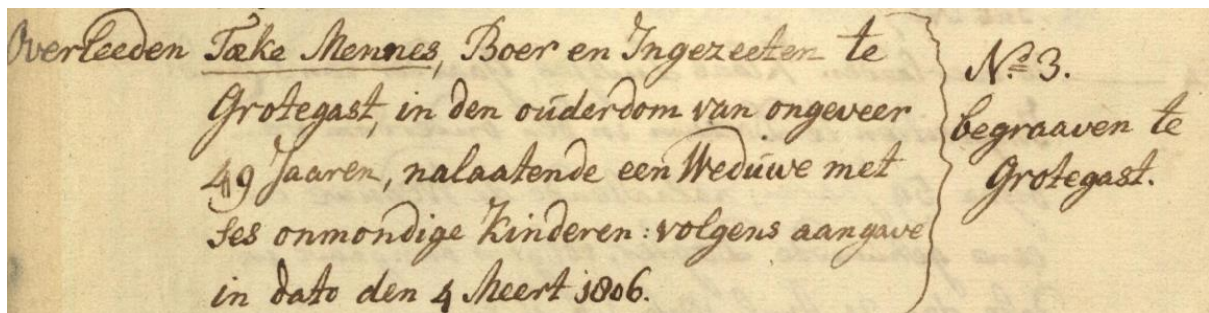 Overleeden Taeke Mennes, Boer en Ingezeeten te
Grotegast, in den oüderdom van ongeveer
49 Jaaren, nalaatende een Wedüwe met
ses onmondige Kinderen: volgens aangave
in dato den 4 Meert 1806.
No. 3.
begraaven te
Grotegast.